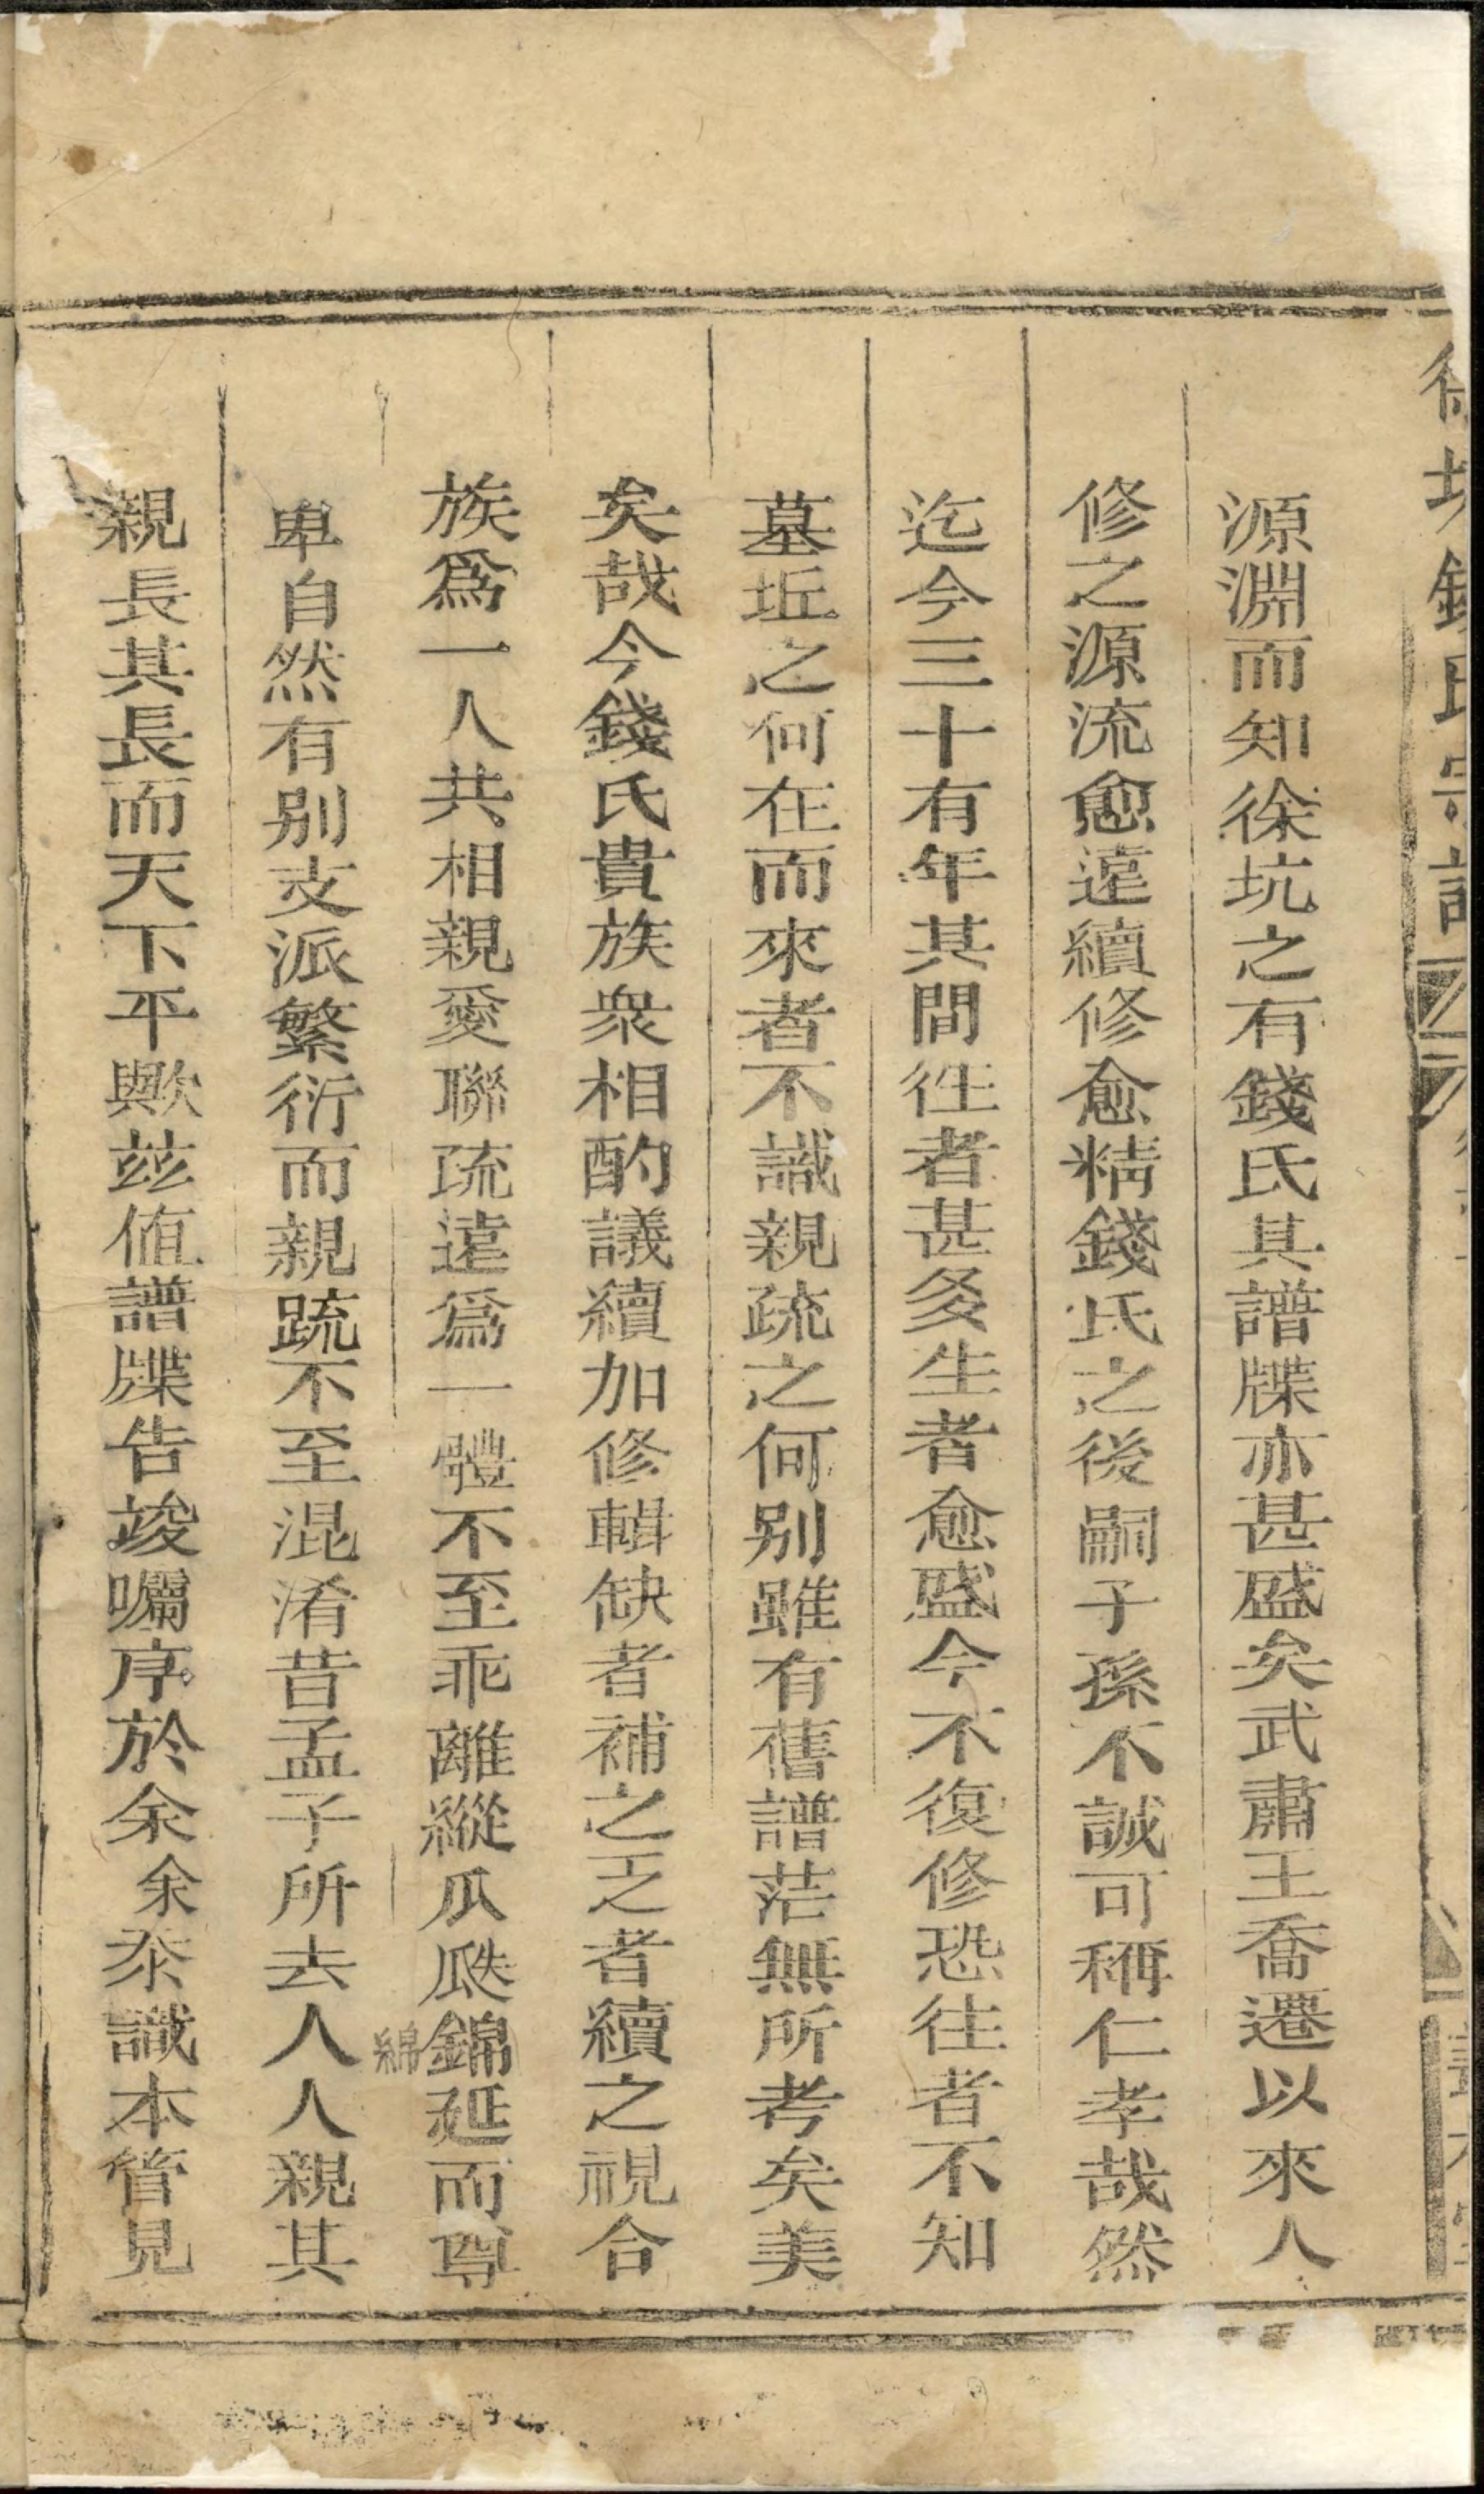 徐坑錢氏宗譜
源淵而知徐坑之有錢氏其譜牒亦甚盛矣武肅王喬遷以來人
修之源流愈遠續修愈精錢氏之後嗣子孫不誠可稱仁孝哉然
迄今三十有年其間徃者甚多生者愈盛今不復修恐往者不知
墓坵之何在而來者不識親疏之何别雖有舊譜茫無所考矣美
矣哉今錢氏貴族衆相酌議續加修輯缺者補之乏者續之視合
族爲一人共相親愛聯疏遠爲一體不至乖離縱瓜瓞錦延而尊
綿
卑自然有别支派繁衍而親䟽不至混淆昔孟子所去人人親其
親長其長而天下平歟茲值譜牒告竣囑序於余余忝識本管見